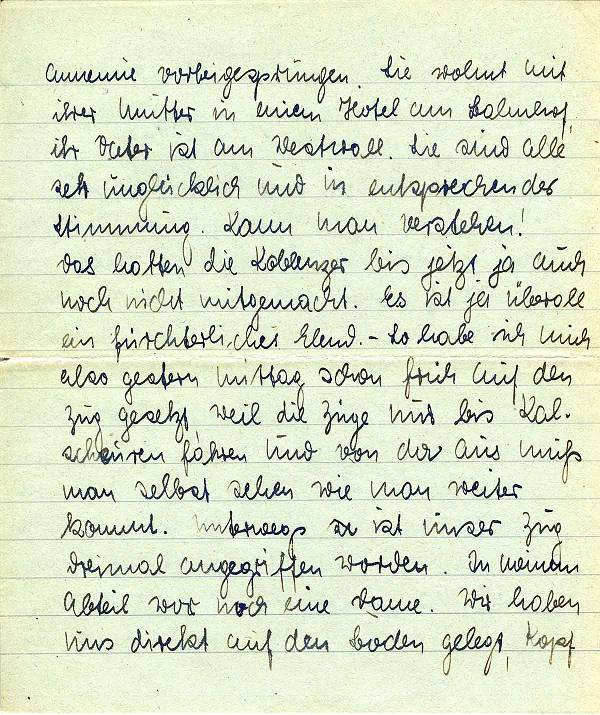 Annemie vorbeigesprungen. Sie wohnt mit
ihrer Mutter in einem Hotel am Bahnhof,
ihr Vater ist am Westwall. Sie sind alle
sehr unglücklich und in entsprechender
Stimmung. Kann man verstehen!
Das hatten die Koblenzer bis jetzt ja auch
noch nicht mitgemacht. Es ist ja überall
ein fürchterliches Elend. – So habe ich mich
also gestern mittag schon früh auf den
Zug gesetzt weil die Züge nur bis Kal-
scheuren fahren und von da aus muß
man selbst sehen wie man weiter
kommt. Unterwegs ist unser Zug
dreimal angegriffen worden. In meinem
Abteil war noch eine Dame. Wir haben
uns direkt auf den Boden gelegt, Kopf